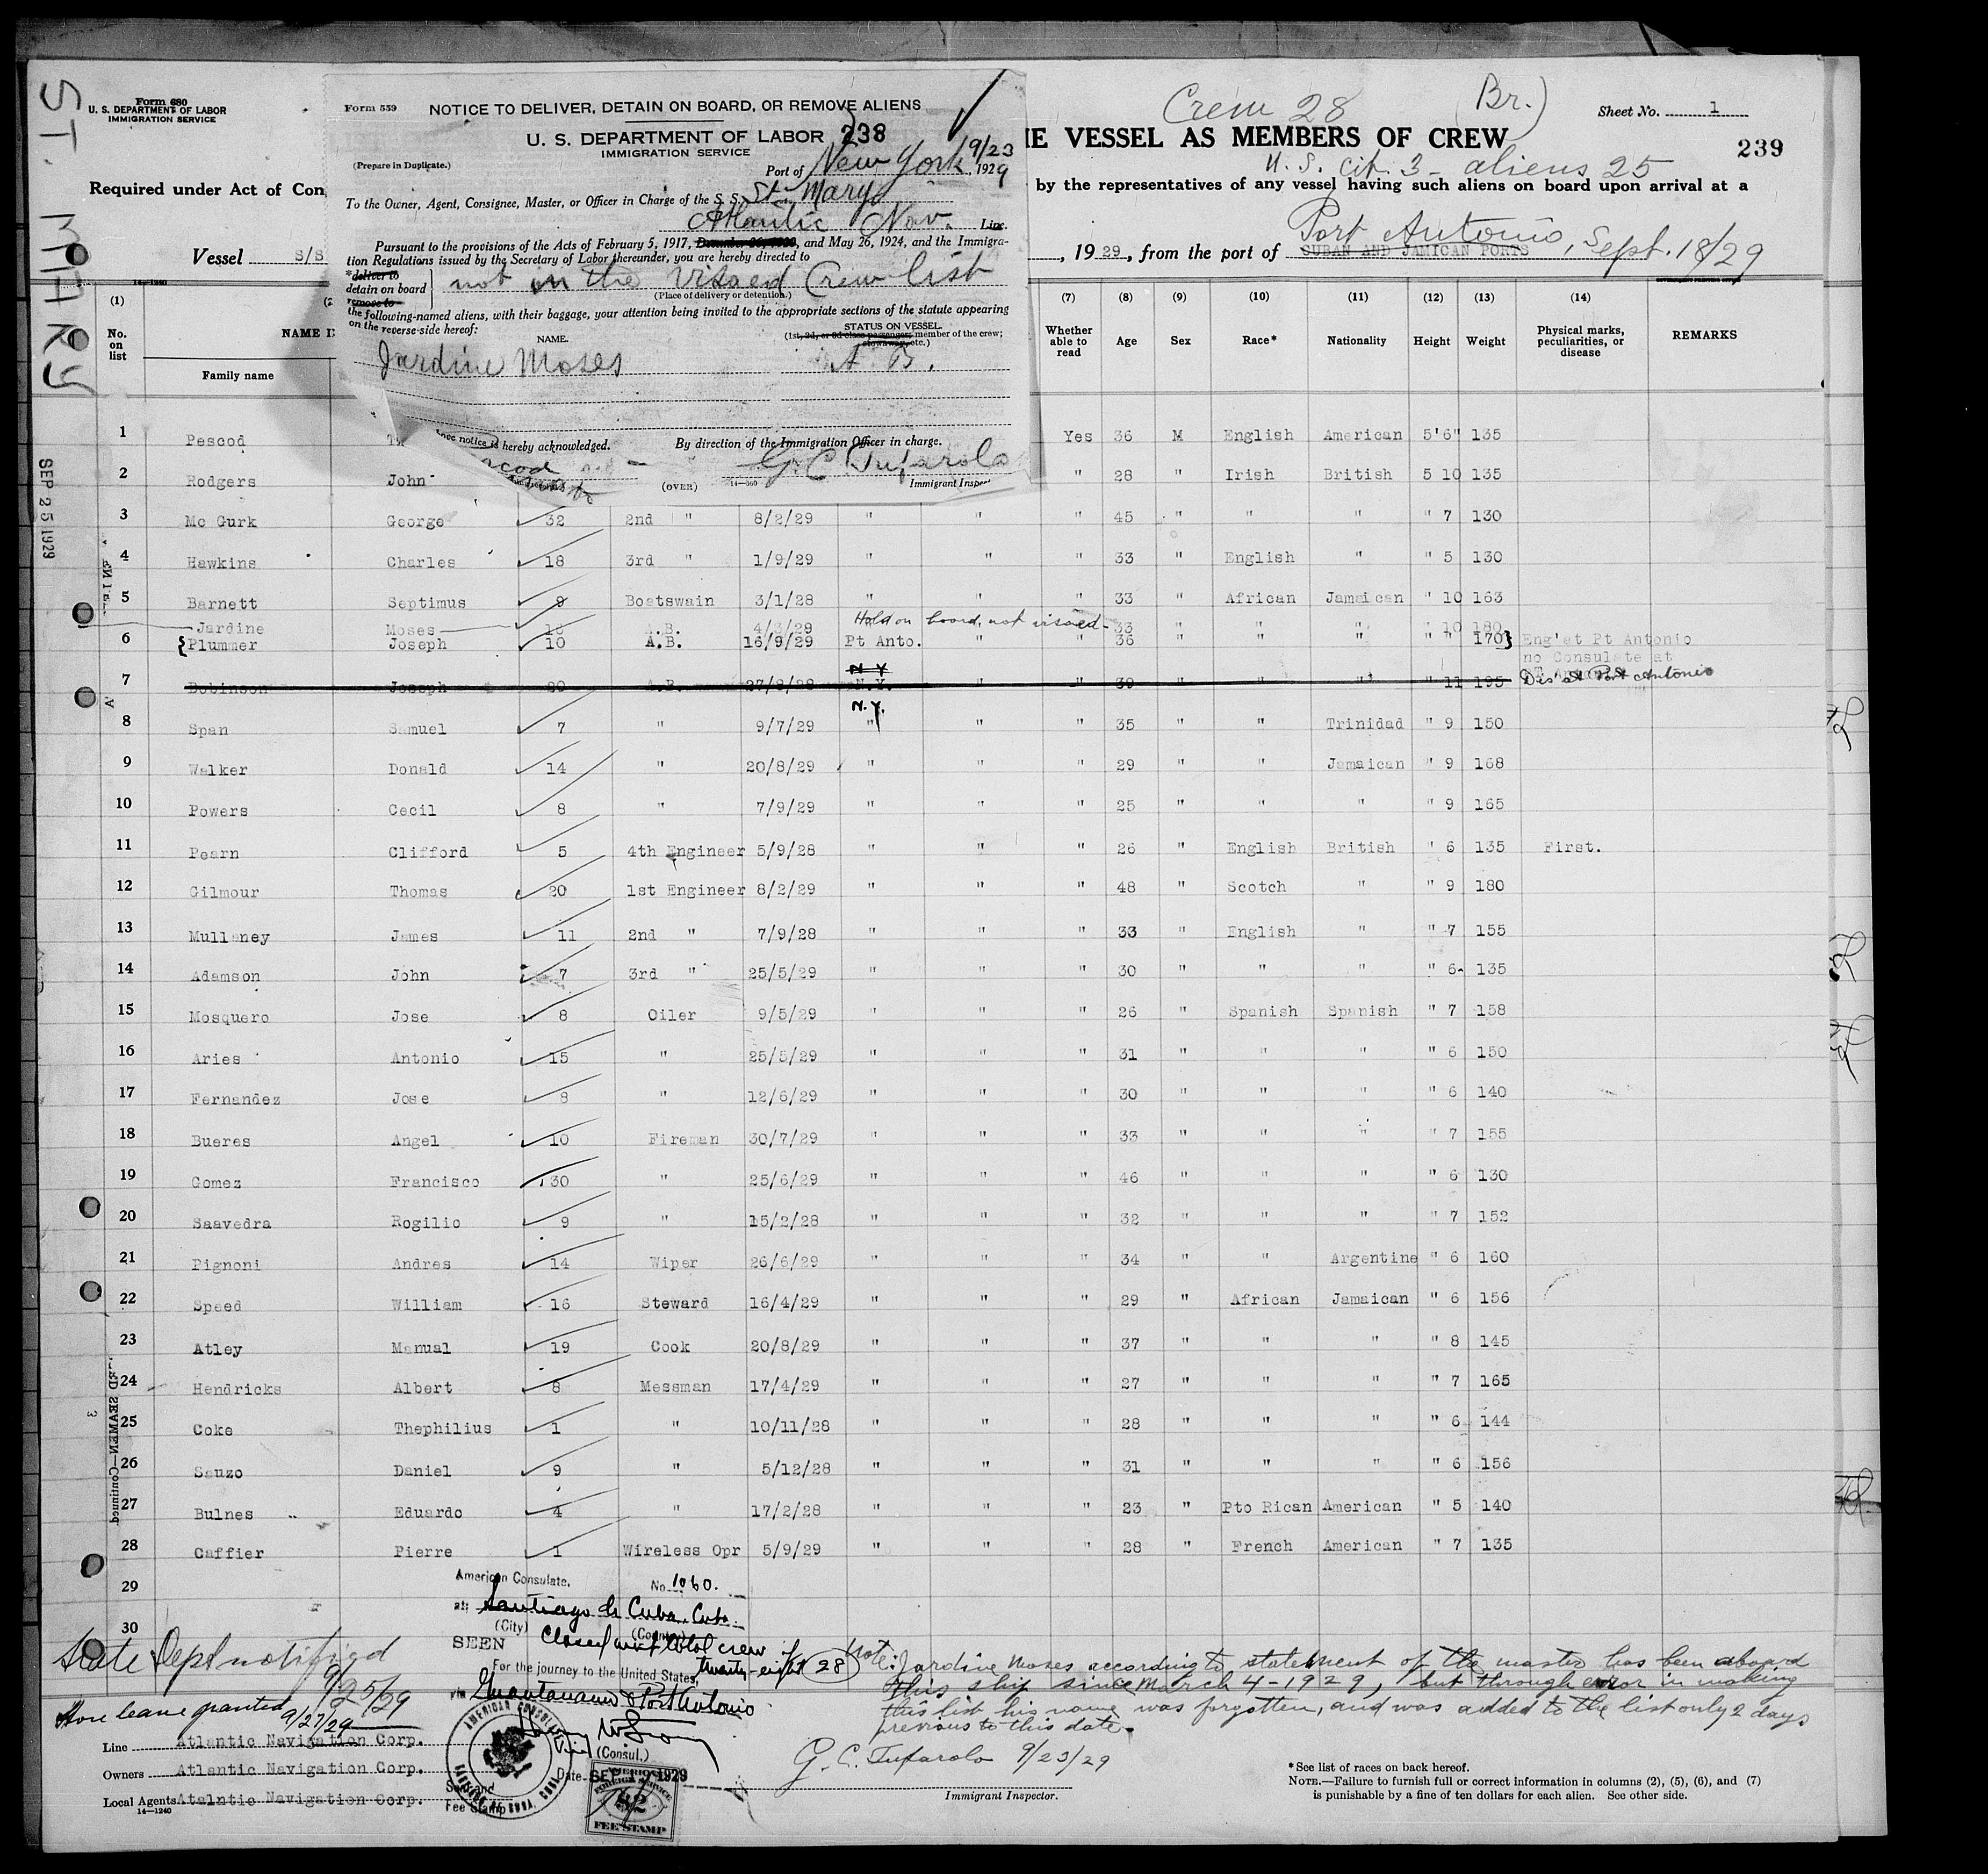 ST. MARY
SEP 25 1929
Form 680
U. S. DEPARTMENT OF LABOR
IMMIGRATION SERVICE
Required under Act of Con
Vessel S/S
Form 559
NOTICE TO DELIVER, DETAIN ON BOARD, OR REMOVE ALIENS
U. S. DEPARTMENT OF LABOR 238
IMMIGRATION SERVICE
(Prepare in Duplicate.)
Port of New York 9/23 1929
To the Owner, Agent, Consignee, Master, or Officer in Charge of the S. S. St. Mary
Atlantic Nav. Line.
Pursuant to the provisions of the Acts of February 5, 1917, December 26, 1920, and May 26, 1924, and the Immigra-
tion Regulations issued by the Secretary of Labor thereunder, you are hereby directed to
*deliver to
detain on board
remove to
not in the visaed Crew list
(Place of delivery or detention.)
the following-named aliens, with their baggage, your attention being invited to the appropriate sections of the statute appearing
on the reverse side hereof:
NAME.
STATUS ON VESSEL
(1st, 2d, or 3d class passenger, member of the crew; stowaway, etc.)
Jardine Moses A. B.
notice is hereby acknowledged.
By direction of the Immigration Officer in charge.
G. C. Tufarolo
(OVER)
14—560
Immigrant Inspec
Crew 28 (Br.)
Sheet No. 1
E VESSEL AS MEMBERS OF CREW
239
U. S. cit. 3 - aliens 25
by the representatives of any vessel having such aliens on board upon arrival at a
, 1929, from the port of Port Antonio, Sept. 18/29
CUBAN AND JAMICAN PORTS
14—1240
(1) (7) (8) (9) (10) (11) (12) (13) (14)
No. on list
NAME I
Family name
Whether able to read
Age
Sex
Race*
Nationality
Height
Weight
Physical marks, peculiarities, or disease
REMARKS
1 Pescod Yes 36 M English American 5'6" 135
2 Rodgers John " 28 " Irish British 5 10 135
3 Mc Gurk George 32 2nd " 8/2/29 " " " 45 " " " " 7 130
4 Hawkins Charles 18 3rd " 1/9/29 " " " 33 " English " " 5 130
5 Barnett Septimus 9 Boatswain 3/1/28 " " " 33 " African Jamaican " 10 163
Jardine Moses 15 A.B. 4/3/29 Hold on board, not visaed - 33 " " " " 10 180
6 Plummer Joseph 10 A.B. 16/9/29 Pt Anto. " " 36 " " " " " 170 Eng'at Pt Antonio
no Consulate at
N Y
7 Dobinson Joseph 20 A.B. 27/8/28 N.Y. " " 39 " " " " 11 195 Dis' at Port Antonio
N.Y.
8 Span Samuel 7 " 9/7/29 " " " 35 " " Trinidad " 9 150
9 Walker Donald 14 " 20/8/29 " " " 29 " " Jamaican " 9 168
10 Powers Cecil 8 " 7/9/29 " " " 25 " " " " 9 165
11 Pearn Clifford 5 4th Engineer 5/9/28 " " " 26 " English British " 6 135 First.
12 Gilmour Thomas 20 1st Engineer 8/2/29 " " " 48 " Scotch " " 9 180
13 Mullaney James 11 2nd " 7/9/28 " " " 33 " English " " 7 155
14 Adamson John 7 3rd " 25/5/29 " " " 30 " " " " 6 135
15 Mosquero Jose 8 Oiler 9/5/29 " " " 26 " Spanish Spanish " 7 158
16 Aries Antonio 15 " 25/5/29 " " " 31 " " " " 6 150
17 Fernandez Jose 8 " 12/6/29 " " " 30 " " " " 6 140
18 Bueres Angel 10 Fireman 30/7/29 " " " 33 " " " " 7 155
19 Gomez Francisco 30 " 25/6/29 " " " 46 " " " " 6 130
20 Saavedra Rogilio 9 " 15/2/28 " " " 32 " " " " 7 152
21 Pignoni Andres 14 Wiper 26/6/29 " " " 34 " " Argentine " 6 160
22 Speed William 16 Steward 16/4/29 " " " 29 " African Jamaican " 6 156
23 Atley Manual 19 Cook 20/8/29 " " " 37 " " " " 8 145
24 Hendricks Albert 8 Messman 17/4/29 " " " 27 " " " " 7 165
25 Coke Thephilius 1 " 10/11/28 " " " 28 " " " " 6 144
26 Sauzo Daniel 9 " 5/12/28 " " " 31 " " " " 6 156
27 Bulnes Eduardo 4 " 17/2/28 " " " 23 " Pto Rican American " 5 140
28 Caffier Pierre 1 Wireless Opr 5/9/29 " " " 28 " French American " 7 135
29
30
SEAMEN—Continued
American Consulate,
No. 1060.
at Santiago de Cuba, Cuba.
(City) (Country)
SEEN Closed with total crew of
For the journey to the United States, twenty-eight (28)
via Guantanamo & Port Antonio
(Consul.)
Date SEP 19 1929
Seal and
Fee Stamp
AMERICAN CONSULATE
$2
FEE STAMP
State Dept notified
9/25/29
Shore leave granted
9/27/29
Line Atlantic Navigation Corp.
Owners Atlantic Navigation Corp.
Local Agents Atalntic Navigation Corp.
14—1240
Note: Jardine Moses according to statement of the master has been aboard
this ship since March 4 - 1929, but through error in making
this list his name was forgotten, and was added to the list only 2 days
previous to this date.
G. C. Tufarolo 9/23/29
Immigrant Inspector.
*See list of races on back hereof.
NOTE.—Failure to furnish full or correct information in columns (2), (5), (6), and (7)
is punishable by a fine of ten dollars for each alien. See other side.